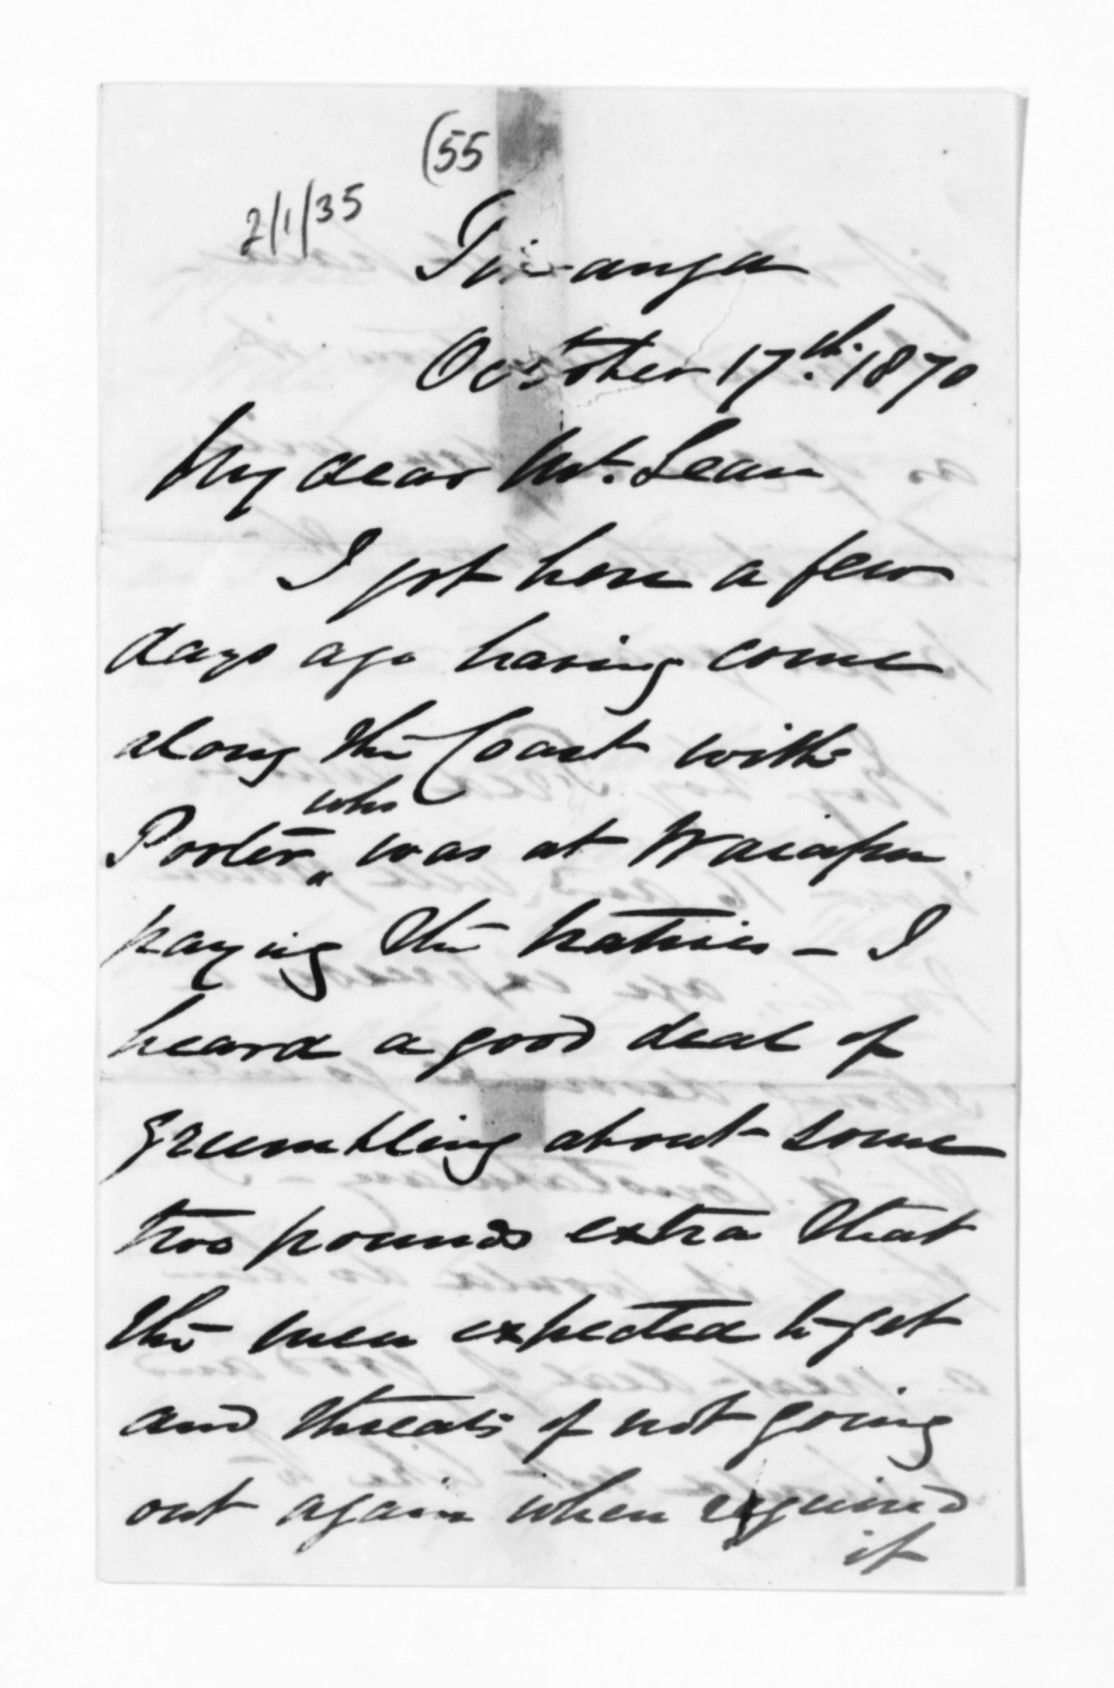 (55
2/1/35
Turanga
October 17th. 1870
My dear Mr. Lean
I got here a few
days ago having come
along the Coast with
who
Porter „ was at Waiapu
paying the natives – I
heard a good deal of
grumbling about some
two pounds extra that
the men expected to get
and threats of not going
out again when required
if